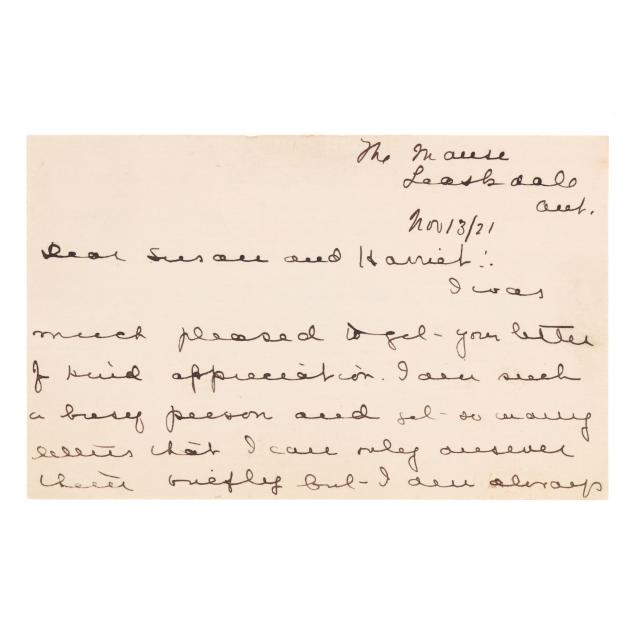 The Manse
Leaskdale
Ont.
Nov 13/21
Dear Susan and Harriet:
I was
much pleased to get your letter
of kind appreciation. I am such
a busy person and get so many
letters that I can only answer
them briefly but I am always